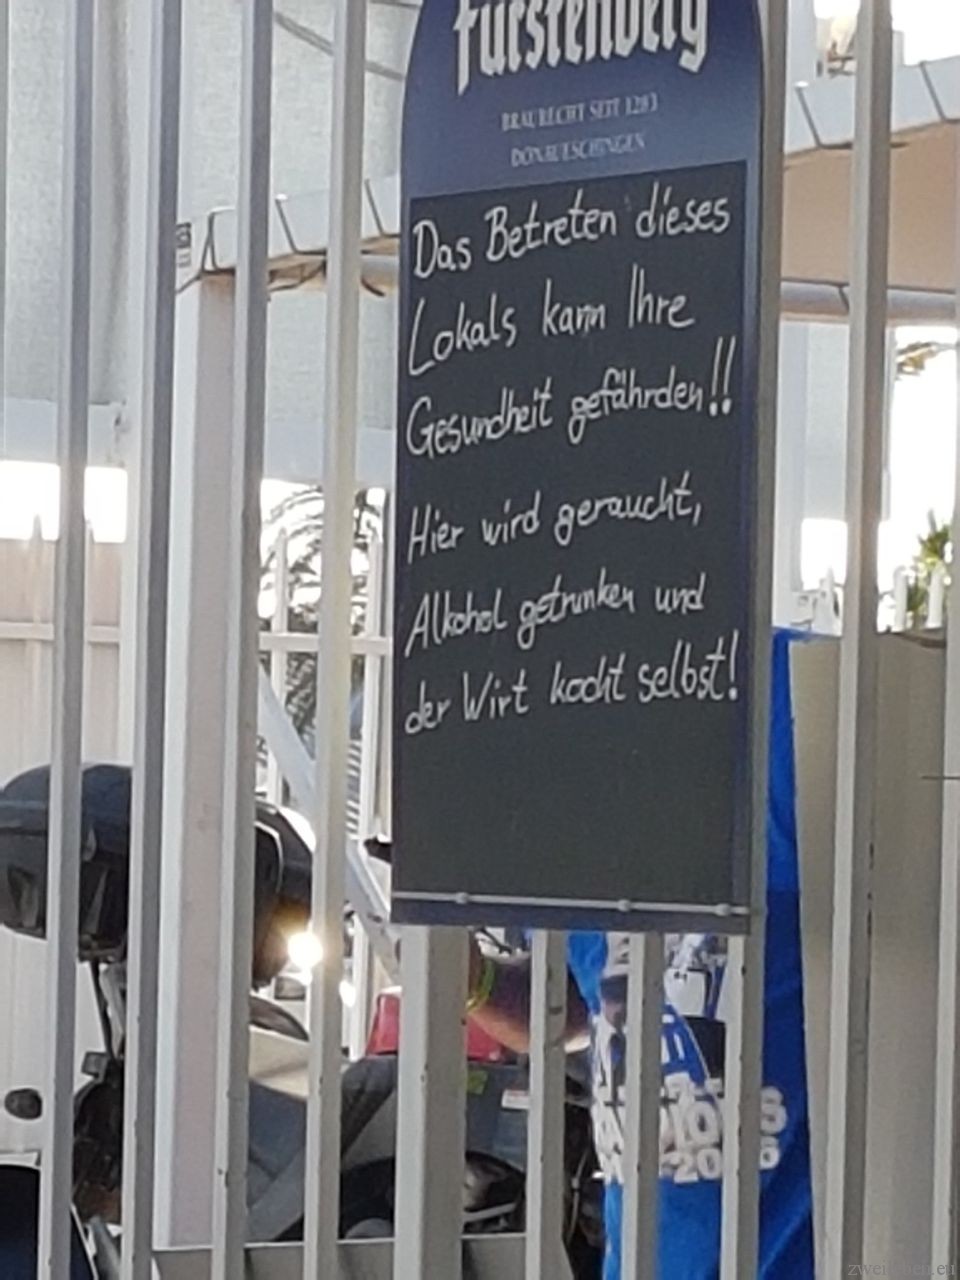 Fürstenberg
BRAURECHT SEIT 1283
DONAUESCHINGEN
Das Betreten dieses
Lokals kann Ihre
Gesundheit gefährden!!
Hier wird geraucht,
Alkohol getrunken und
der Wirt kocht selbst!